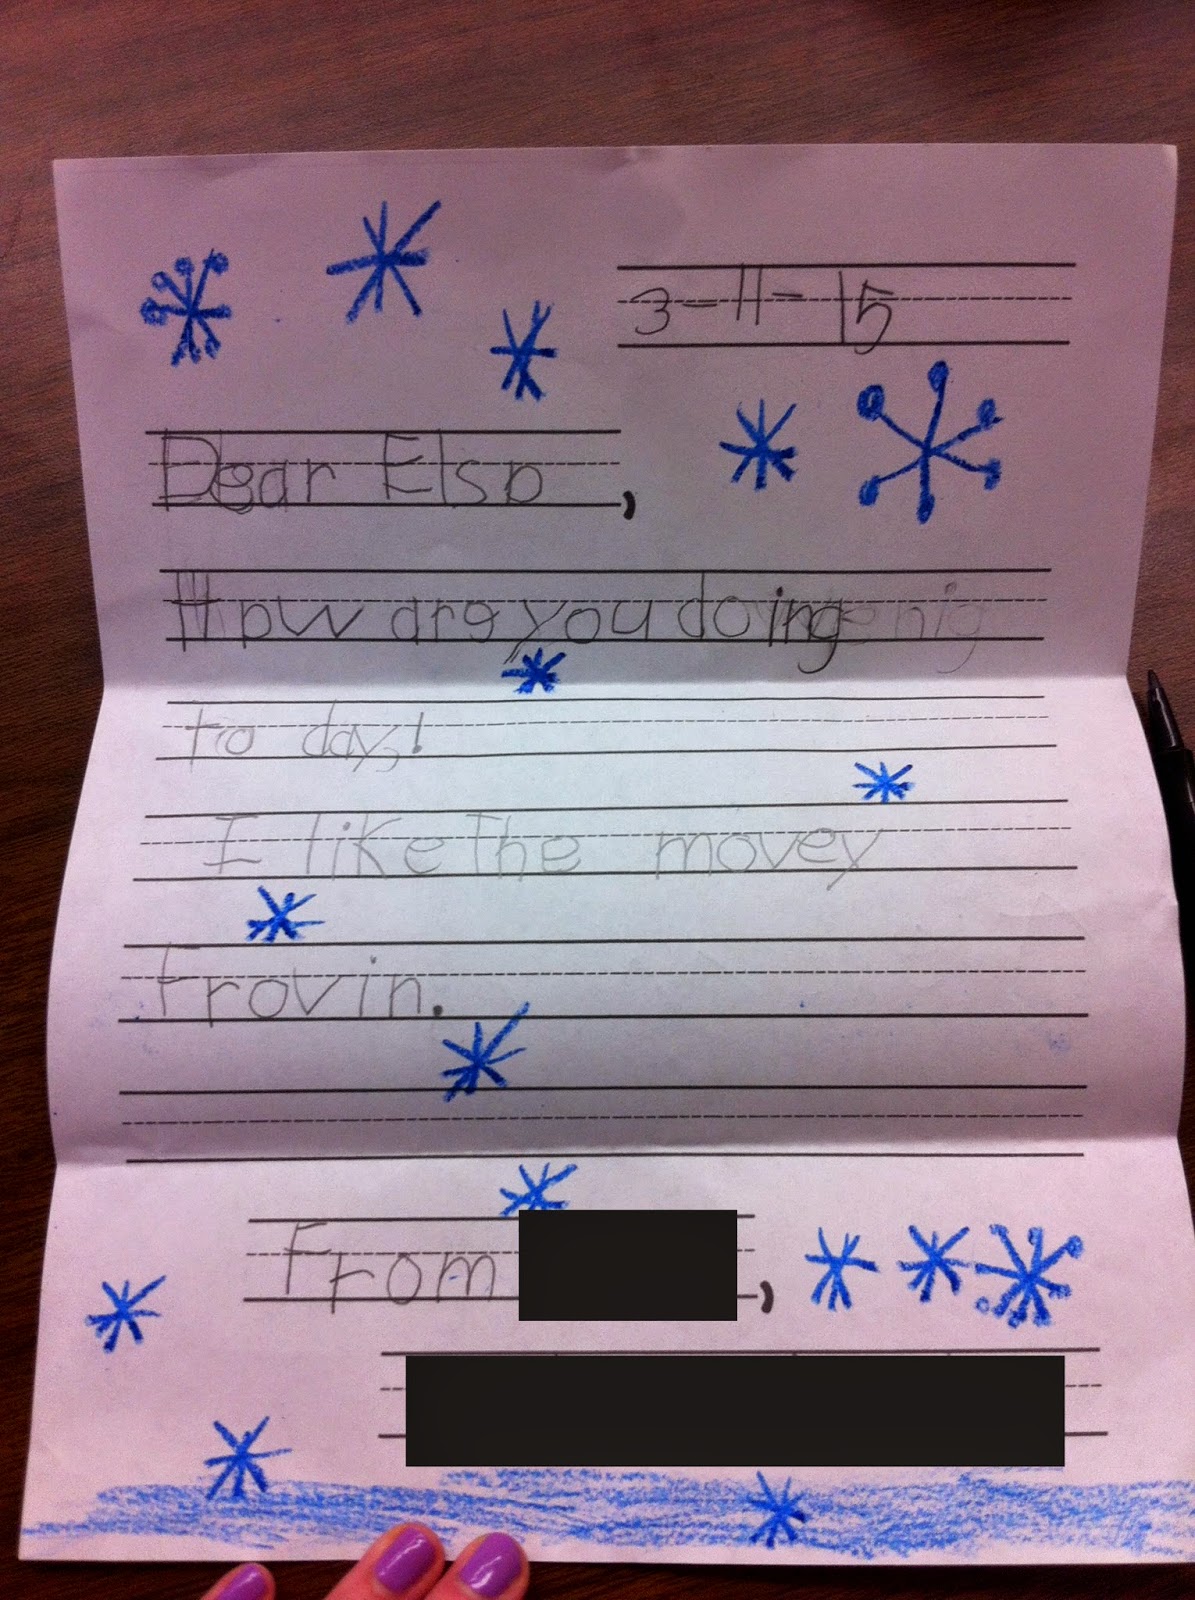 3-11-15
Dear Elsa,
How are you doing
to day!
I like The movey
Frovin.
From ,